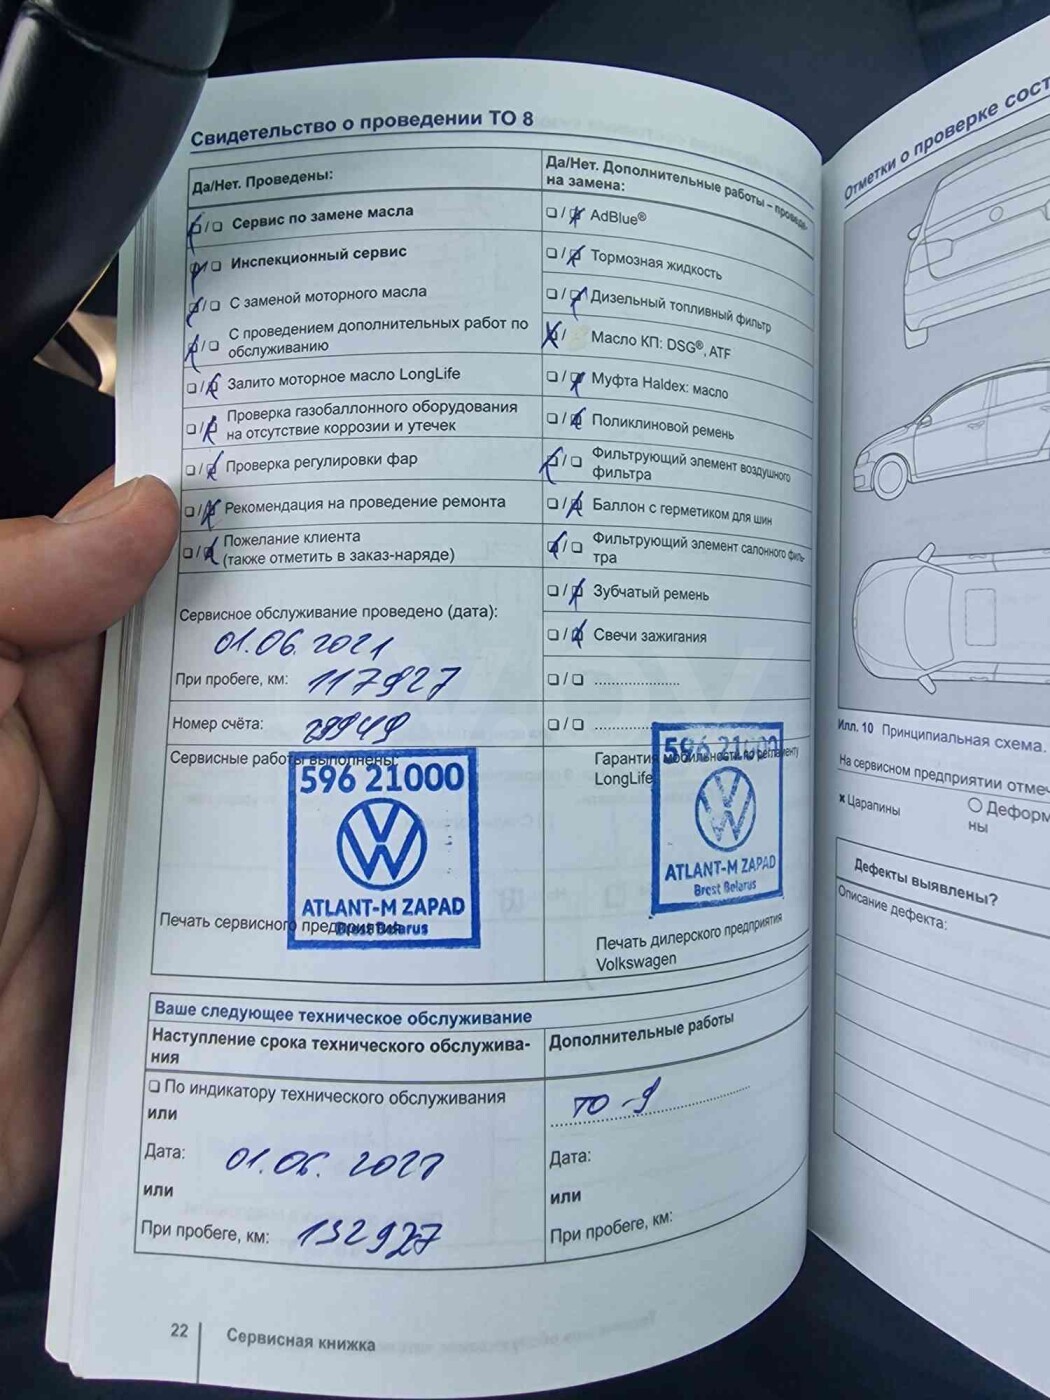 Свидетельство о проведении ТО 8
Да/Нет. Проведены:
Сервис по замене масла
Инспекционный сервис
С заменой моторного масла
С проведением дополнительных работ по
обслуживанию
Залито моторное масло LongLife
Проверка газобаллонного оборудования
на отсутствие коррозии и утечек
Проверка регулировки фар
Рекомендация на проведение ремонта
Пожелание клиента
(также отметить в заказ-наряде)
Сервисное обслуживание проведено (дата):
01.06.2021
При пробеге, км: 117927
Номер счёта: 28949
Сервисные работы выполнены:
596 21000
ATLANT-M ZAPAD
Brest Belarus
Печать сервисного предприятия
Да/Нет. Дополнительные работы – проведе-
на замена:
AdBlue®
Тормозная жидкость
Дизельный топливный фильтр
Масло КП: DSG®, ATF
Муфта Haldex: масло
Поликлиновой ремень
Фильтрующий элемент воздушного
фильтра
Баллон с герметиком для шин
Фильтрующий элемент салонного филь-
тра
Зубчатый ремень
Свечи зажигания
Гарантия мобильности по регламенту
LongLife
596 21000
ATLANT-M ZAPAD
Brest Belarus
Печать дилерского предприятия
Volkswagen
Ваше следующее техническое обслуживание
Наступление срока технического обслужива-
ния
По индикатору технического обслуживания
или
Дата: 01.06.
или
При пробеге, км: 132927
Дополнительные работы
ТО-9
Дата:
или
При пробеге, км:
22 Сервисная книжка
Отметки о проверке сост
Илл. 10 Принципиальная схема.
На сервисном предприятии отмеч
x Царапины
Деформ
ны
Дефекты выявлены?
Описание дефекта: